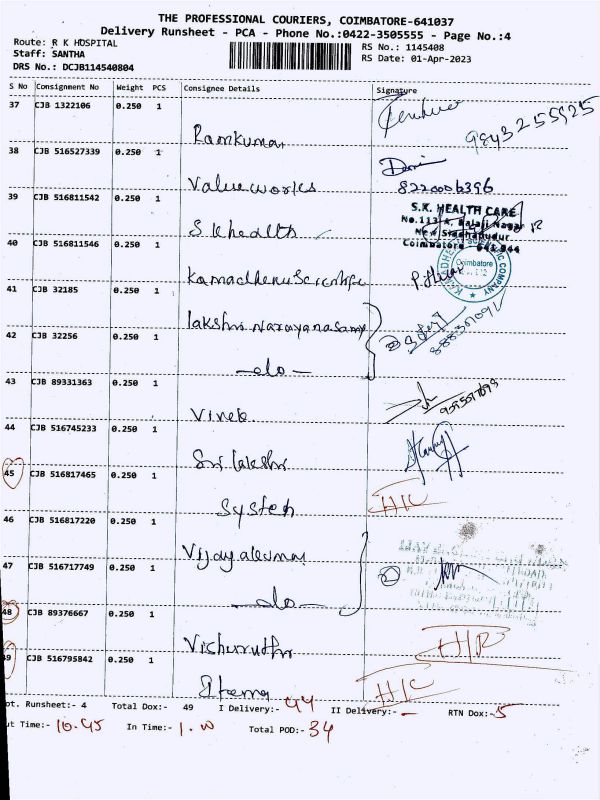 THE PROFESSIONAL COURIERS, COIMBATORE-641037
Delivery Runsheet - PCA - Phone No.:0422-3505555 - Page No.:4
Route: R K HOSPITAL
Staff: SANTHA
DRS No.: DCJB114540804
RS No.: 1145408
RS Date: 01-Apr-2023
S No Consignment No Weight PCS Consignee Details Signature
37 CJB 1322106 0.250 1
Ramkumar 9843255925
38 CJB 516527339 0.250 1
Valueworks 8220006396
39 CJB 516811542 0.250 1
S k health
S.K. HEALTH CARE
Coimbatore
40 CJB 516811546 0.250 1
Kamadhenu Scientific
Coimbatore
41 CJB 32185 0.250 1
lakshmi Narayanasamy
42 CJB 32256 0.250 1
-do-
43 CJB 89331363 0.250 1
Vivek
44 CJB 516745233 0.250 1
Sri lakshmi
45 CJB 516817465 0.250 1
System
46 CJB 516817220 0.250 1
Vijayakumar
47 CJB 516717749 0.250 1
-do-
48 CJB 89376667 0.250 1
49 CJB 516795842 0.250 1
ot. Runsheet:- 4 Total Dox:- 49 I Delivery:- 44 II Delivery:- - RTN Dox:- 5
ut Time:- 10.45 In Time:- 1.00 Total POD:- 34